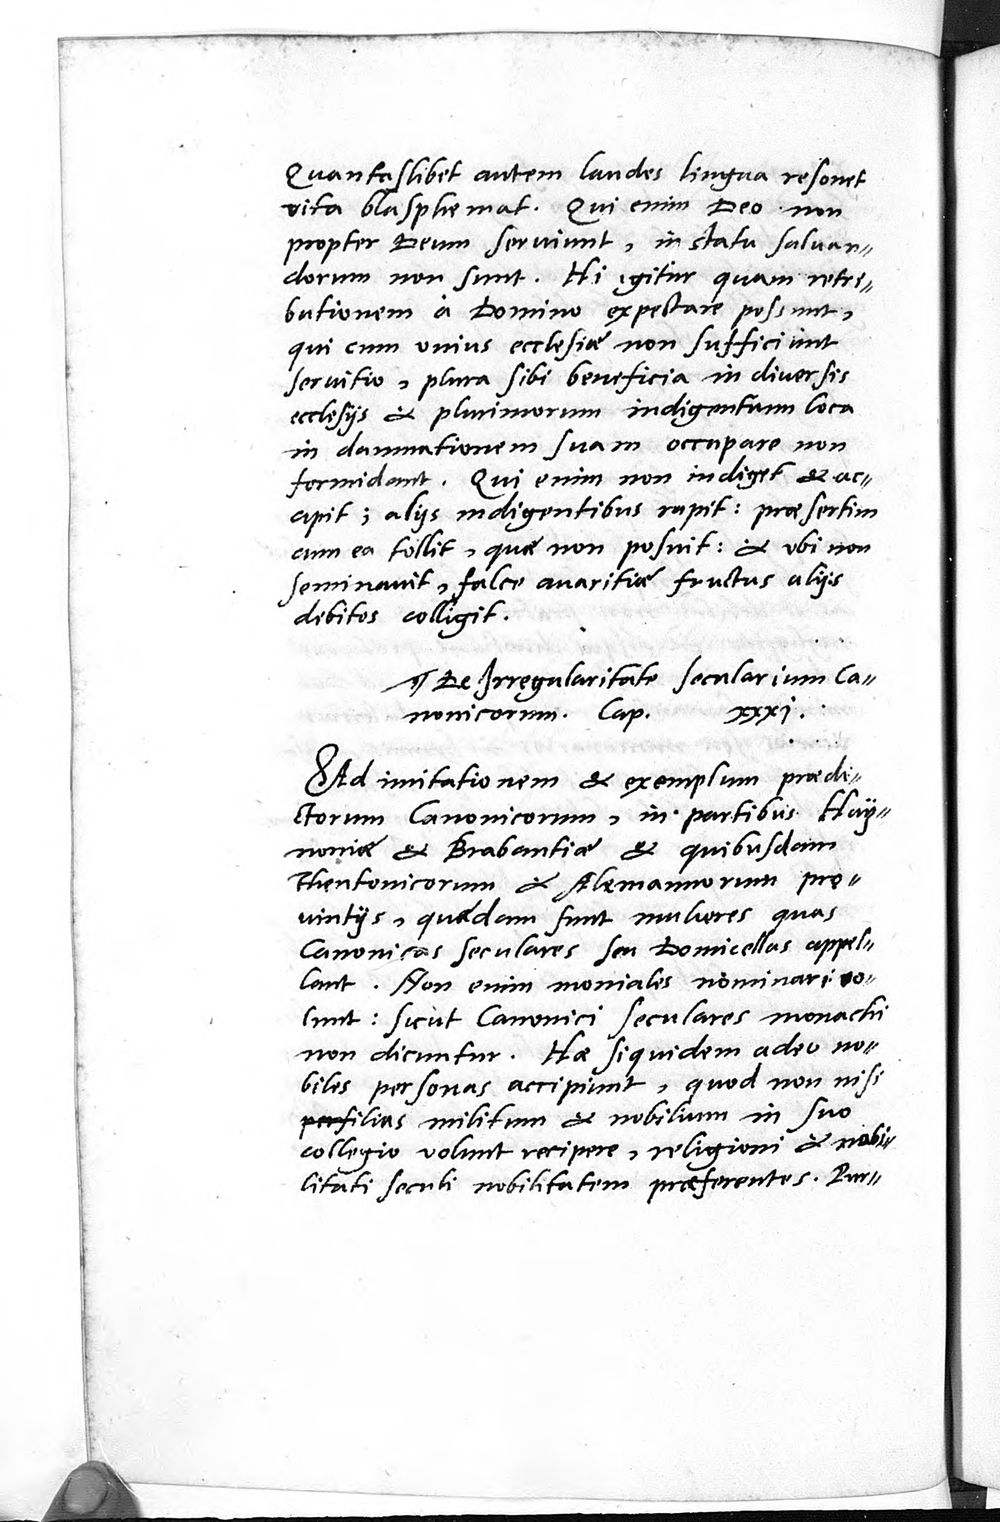 Quantaslibet autem laudes lingua resonet
vita blasphemat. Qui enim Deo non
propter Deum serviunt, in statu salvan„
dorum non sunt. Hi igitur quam retri„
butionem à Domino expectare possunt,
qui cum unius ecclesiæ non sufficiunt
servitio, plura sibi beneficia in diversis
ecclesijs & plurimorum indigentium loca
in damnationem suam occupare non
formidant. Qui enim non indiget & ac„
cipit; alijs indigentibus rapit: præsertim
cum ea tollit, quæ non posuit: & ubi non
seminavit, falce avaritiæ fructus alijs
debitos colligit.
¶ De Irregularitate secularium Ca„
nonicorum. Cap. xxxi.
Ad imitationem & exemplum prædi„
ctorum Canonicorum, in partibus Haÿ„
noniæ & Brabantiæ & quibusdam
Theutonicorum & Alemannorum pro„
vintijs, quædam sunt mulieres quas
Canonicas seculares seu Domicellas appel„
lant. Non enim moniales nominari vo„
lunt: sicut Canonici seculares monachi
non dicuntur. Hæ siquidem adeo no„
biles personas accipiunt, quod non nisi
filias militum & nobilium in suo
collegio volunt recipere, religioni & nobi„
litati seculi nobilitatem præferentes. Pur„